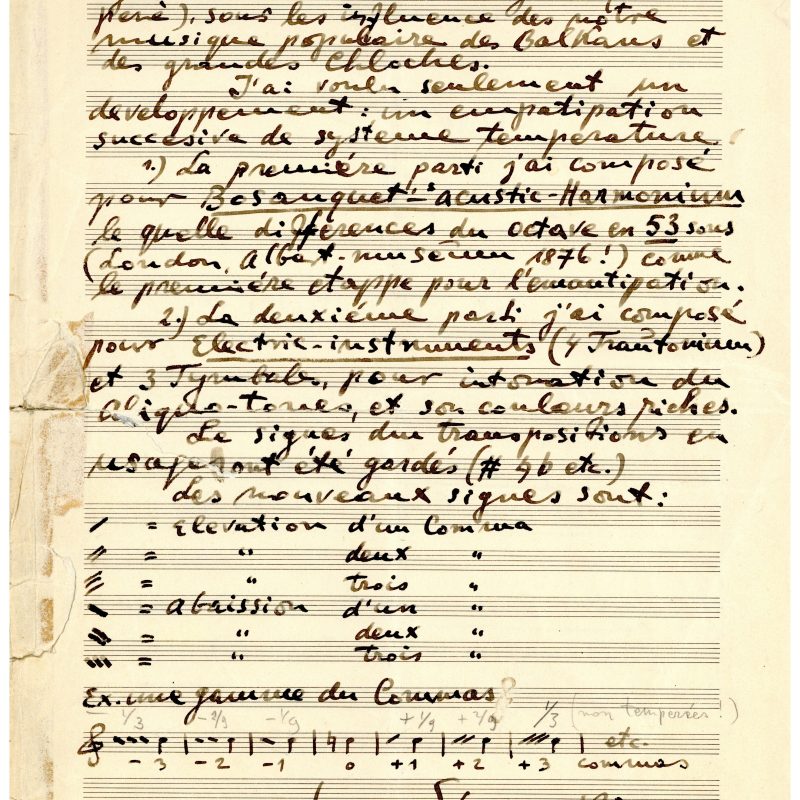 peré), sous les influence des nôtre
musique populaire des Balkans et
des grandes Chloches.
J'ai voulu seulement un
developpement: un empatipation
succesive de systeme temperature.
1.) La premiére parti j'ai composé
pour Bosanquet's-acustic-Harmonium
le quelle differences du octave en 53 sons
(London, Albert-museum 1876!) comme
le premiére etappe pour l'emantipation.
2.) La deuxiéme parti j'ai composé
pour Electric-instruments (4 Trautonium)
et 3 Tymbales, pour intonation du
Aliquo-tones, et son couleurs riches.
Le signes du transpositions en
usage sont été gardés (# ♮ b etc.)
Les nouveaux signes sont:
= Elevation d'un Comma
= " deux "
= " trois "
= Abaission d'un "
= " deux "
= " trois "
Ex. une gamme du Commas
1/3 -2/9 -1/9 +1/9 +2/9 1/3 (non temperées!)
etc.
-3 -2 -1 0 +1 +2 +3 commas